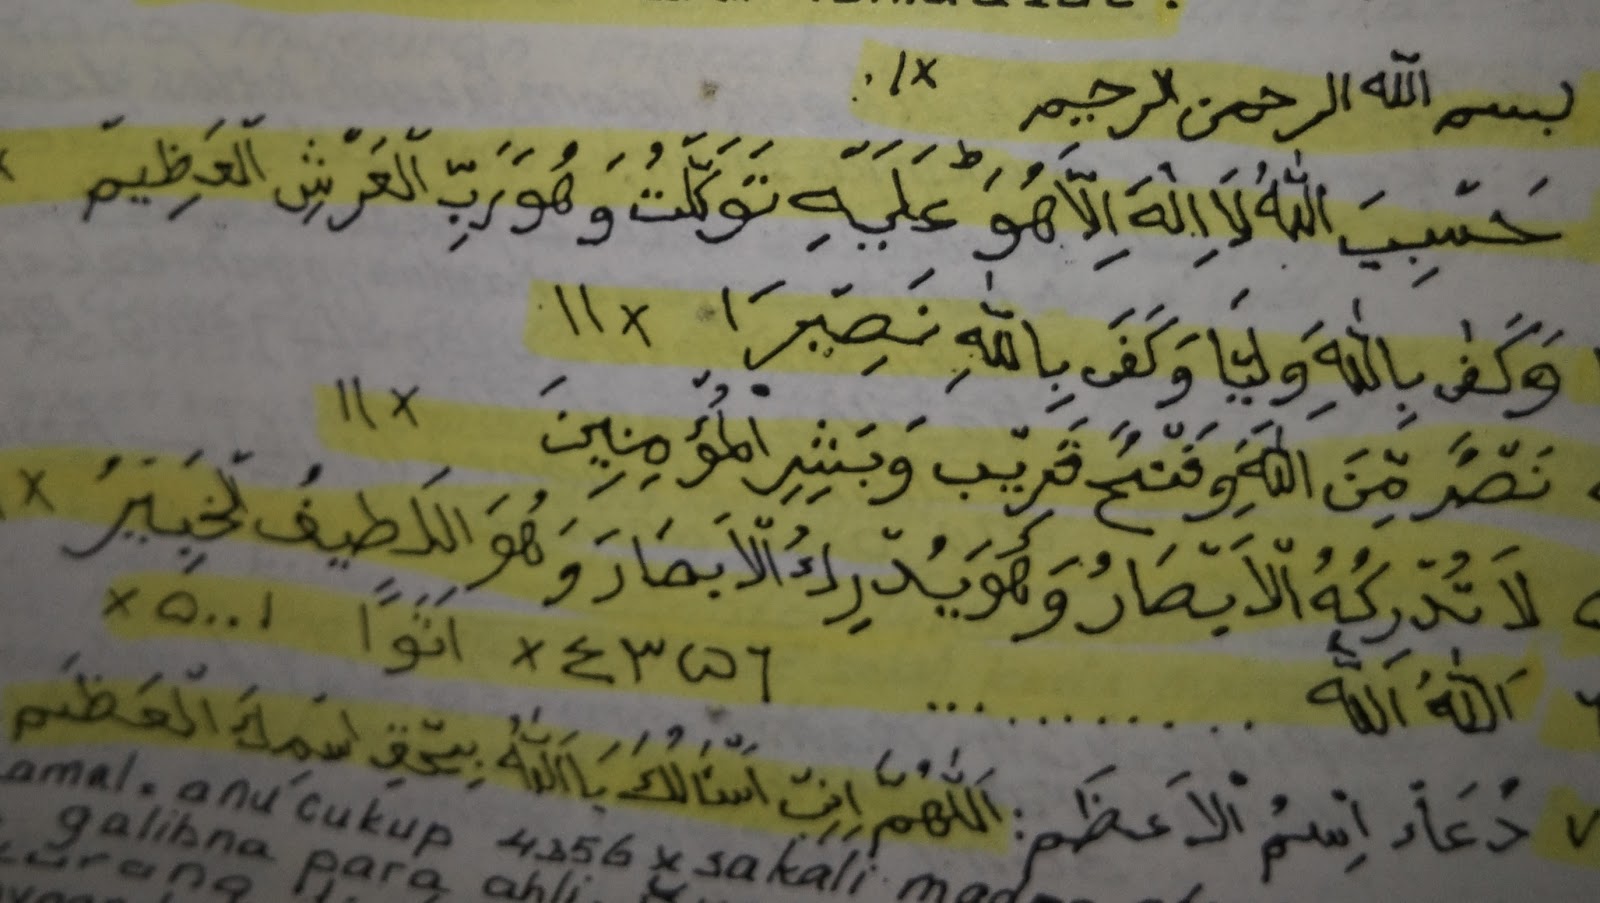 بسم الله الرحمن الرحيم ١x
حَسْبِيَ اللهُ لَا اِلٰهَ اِلَّا هُوَ ۖ عَلَيْهِ تَوَكَّلْتُ وَهُوَ رَبِّ الْعَرْشِ الْعَظِيْمِ x
وَكَفٰى بِاللهِ وَلِيًّا وَكَفَى بِاللهِ نَصِيْرًا ١١x
نَصْرٌ مِّنَ اللهِ وَفَتْحٌ قَرِيْبٌ وَبَشِّرِ الْمُؤْمِنِيْنَ ١١x
لَا تُدْرِكُهُ الْاَبْصَارُ وَهُوَ يُدْرِكُ الْاَبْصَارَ وَهُوَ اللَّطِيْفُ الْخَبِيْرُ x
اَللهُ اَللهُ ........... ٤٣٥٦ x اَتَوْا ٥٠٠١ x
٧ دُعَاء اِسْمُ الْاَعْظَمِ : اَللّٰهُمَّ اِنِّيْ اَسْأَلُكَ يَا اَللهُ بِحَقِّ اسْمِكَ الْعَظِيْم
amal. anu cukup 4356 x sakali
galibna para ahli